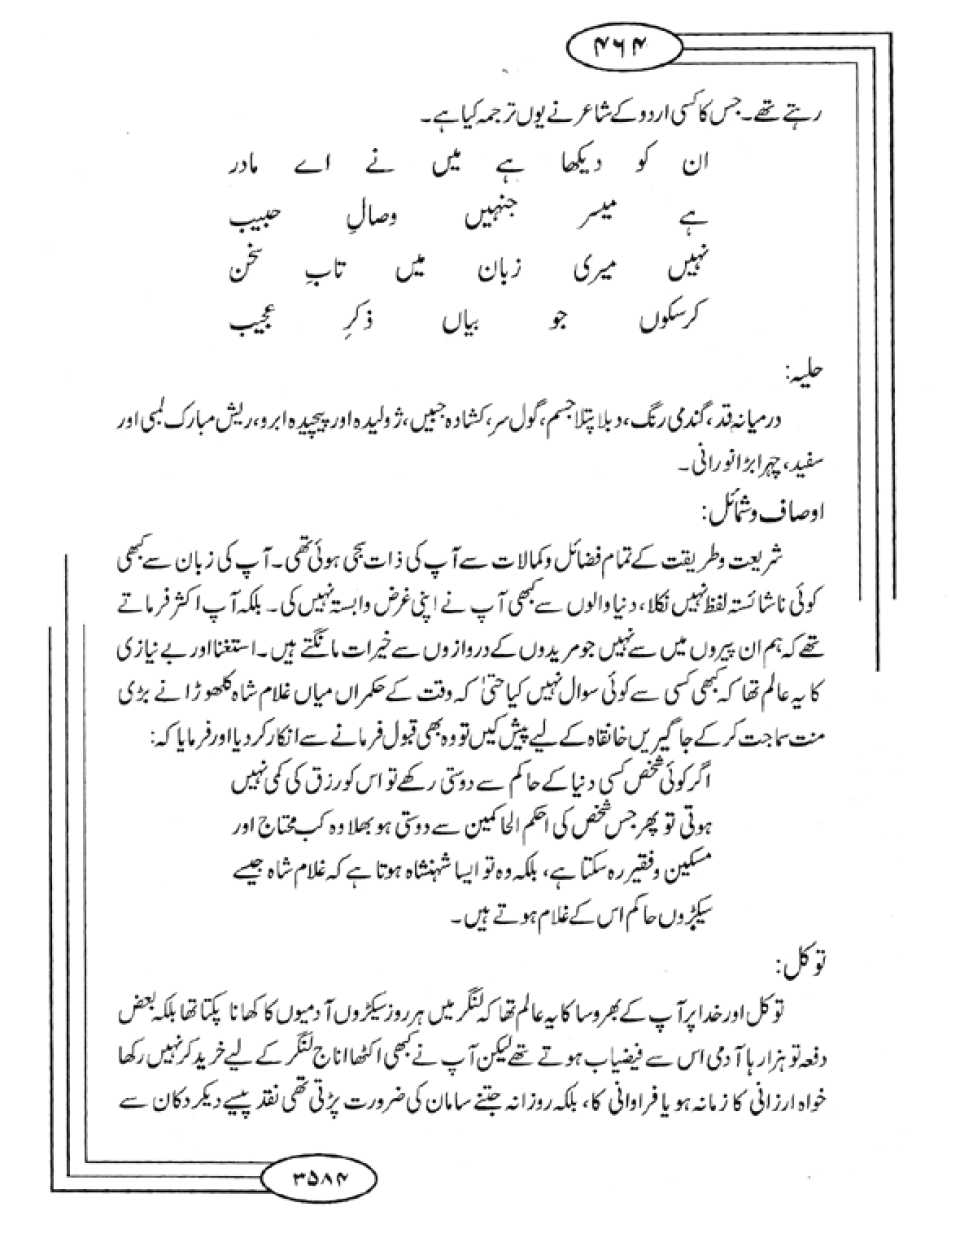 ۴۶۴
رہتے تھے۔ جس کا کسی اردو کے شاعر نے یوں ترجمہ کیا ہے۔
ان کو دیکھا ہے میں نے اے مادر
ہے میسر جنہیں وصالِ حبیب
نہیں میری زبان میں تابِ سخن
کرسکوں جو بیاں ذکرِ عجیب
حلیہ:
درمیانہ قد، گندمی رنگ، دبلا پتلا جسم، گول سر، کشادہ جبیں، ژولیدہ اور پیچیدہ ابرو، ریش مبارک لمبی اور
سفید، چہرا بڑا نورانی۔
اوصاف وشمائل:
شریعت وطریقت کے تمام فضائل وکمالات سے آپ کی ذات سجی ہوئی تھی۔ آپ کی زبان سے کبھی
کوئی ناشائستہ لفظ نہیں نکلا، دنیا والوں سے کبھی آپ نے اپنی غرض وابستہ نہیں کی۔ بلکہ آپ اکثر فرماتے
تھے کہ ہم ان پیروں میں سے نہیں جو مریدوں کے دروازوں سے خیرات مانگتے ہیں۔ استغنا اور بے نیازی
کا یہ عالم تھا کہ کبھی کسی سے کوئی سوال نہیں کیا حتیٰ کہ وقت کے حکمراں میاں غلام شاہ کلھوڑا نے بڑی
منت سماجت کرکے جاگیریں خانقاہ کے لیے پیش کیں تو وہ بھی قبول فرمانے سے انکار کردیا اور فرمایا کہ:
اگر کوئی شخص کسی دنیا کے حاکم سے دوستی رکھے تو اس کو رزق کی کمی نہیں
ہوتی تو پھر جس شخص کی احکم الحاکمین سے دوستی ہو بھلا وہ کب محتاج اور
مسکین وفقیر رہ سکتا ہے، بلکہ وہ تو ایسا شہنشاہ ہوتا ہے کہ غلام شاہ جیسے
سیکڑوں حاکم اس کے غلام ہوتے ہیں۔
توکل:
توکل اور خدا پر آپ کے بھروسا کا یہ عالم تھا کہ لنگر میں ہر روز سیکڑوں آدمیوں کا کھانا پکتا تھا بلکہ بعض
دفعہ تو ہزارہا آدمی اس سے فیضیاب ہوتے تھے لیکن آپ نے کبھی اکٹھا اناج لنگر کے لیے خرید کر نہیں رکھا
خواہ ارزانی کا زمانہ ہو یا فراوانی کا، بلکہ روزانہ جتنے سامان کی ضرورت پڑتی تھی نقد پیسے دیکر دکان سے
۳۵۸۴